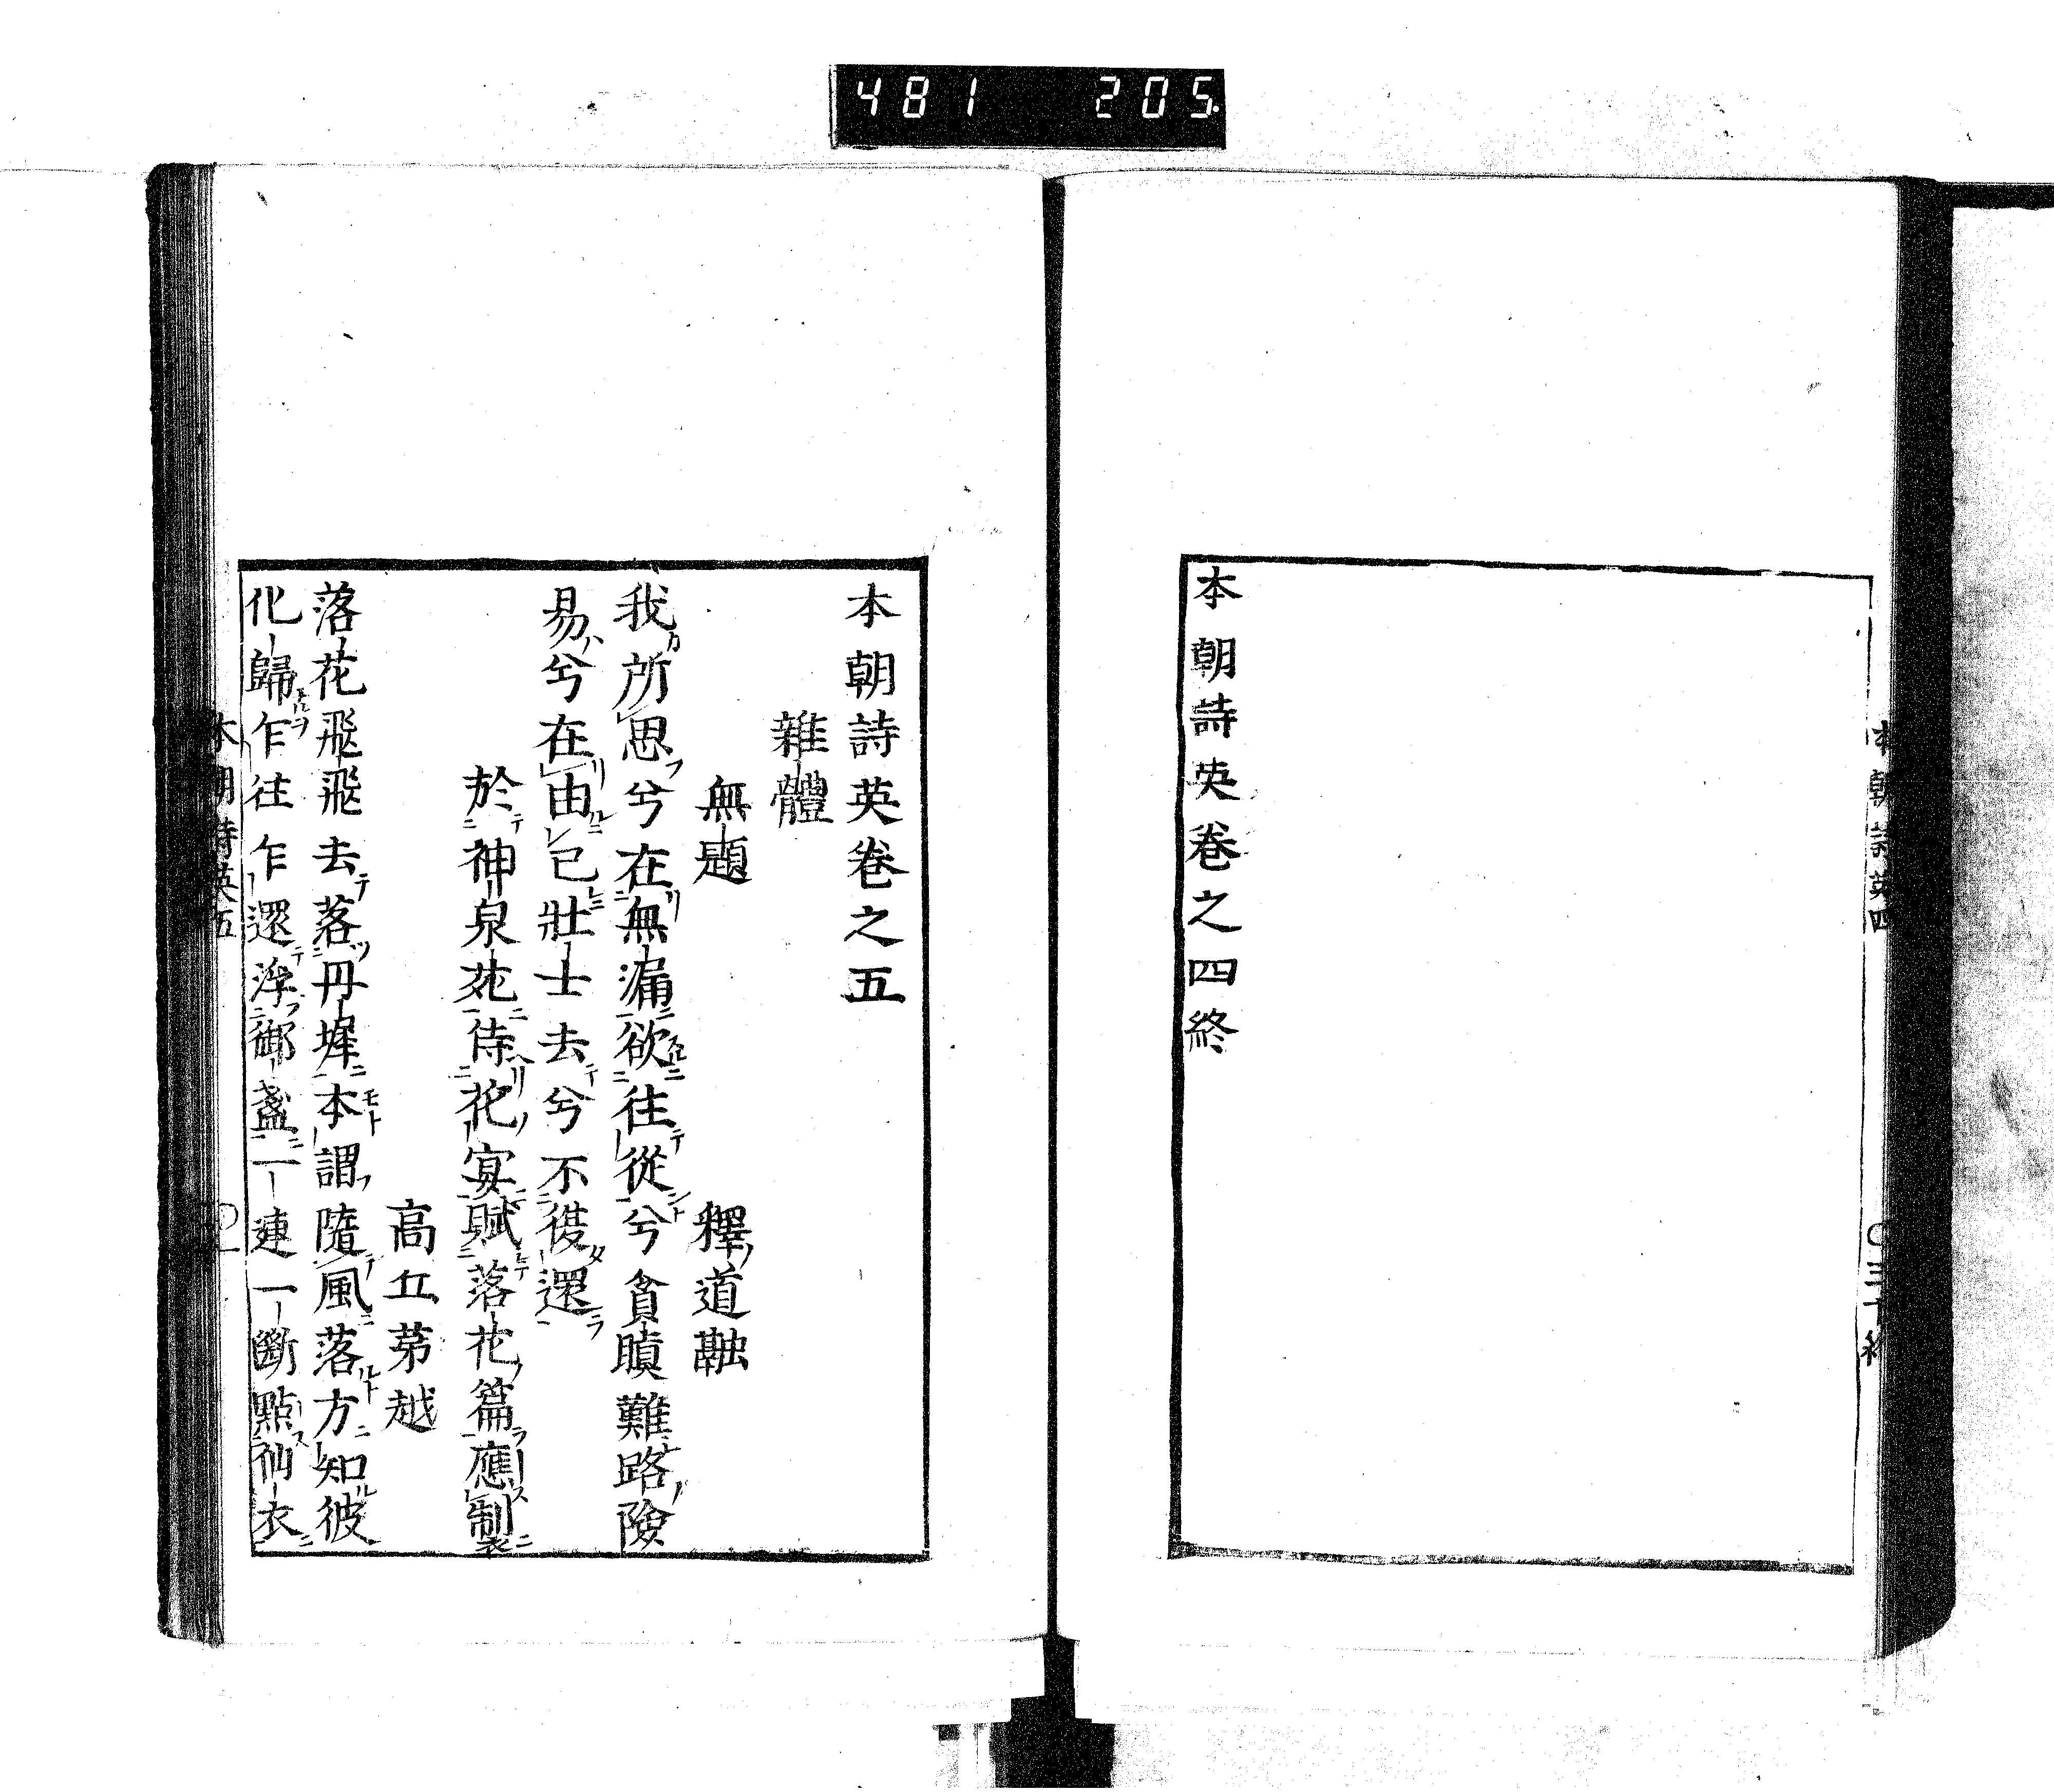 481 205
本朝詩英四
〇三十終
本朝詩英卷之四終
本朝詩英卷之五
雜體
無題
釋道融
我所思兮在無漏欲往從兮貪瞋難路險
易兮在由己壯士去兮不復還
於神泉苑侍花宴賦落花篇應製
高丘苐越
落花飛飛去落丹墀本謂隨風落方知彼
化歸乍往乍還浮御盞一連一斷點仙衣
本朝詩英五
〇一